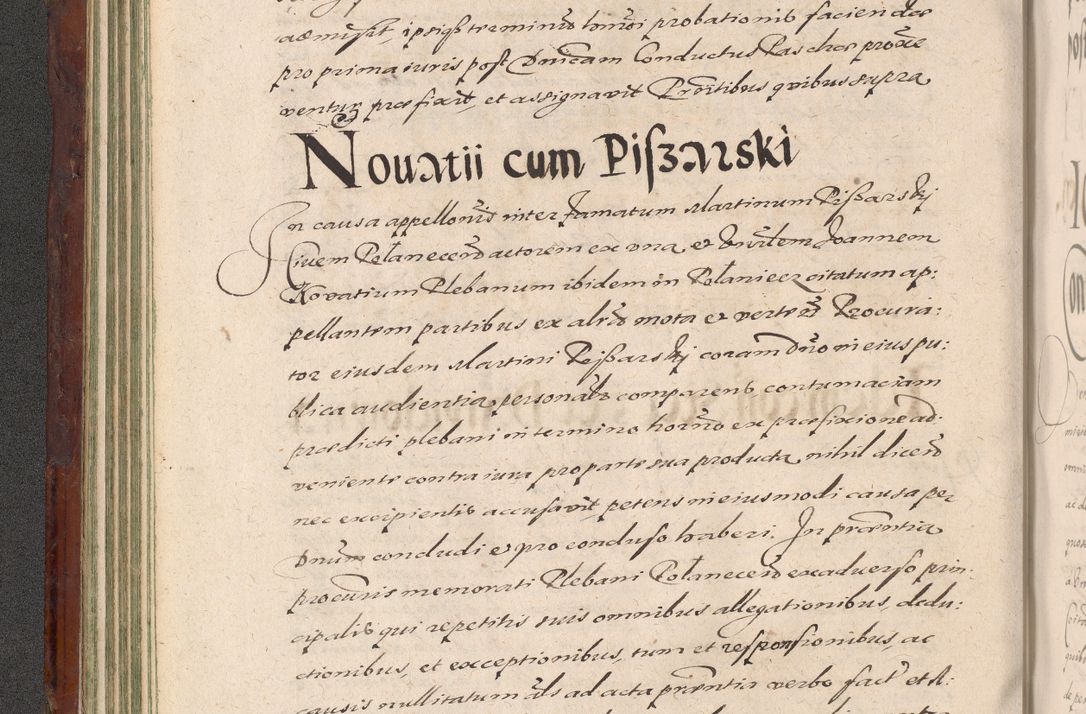 admisit, ipsisq terminum homoi probationis faciendae
pro prima iuris post Dnicam Conductus Paschae proxe
ventur praefixit, et assignavit Prntibus quibus supra
Nouatii cum Piszarski
In causa appellonis inter famatum Martinum Pißarski
Civem Polanecens actorem ex una, et Honrdem Joannem
Novatium Plebanum ibidem in Polaniecz citatum ap:
pellantem partibus ex altera mota et verten Procura:
tor eiusdem Martini Pißarski coram Dno in eius pu:
blica audientia personalr comparens contumaciam
praedicti plebani in termino horno ex praefixione ad
veniente contra iura pro parte sua producta nihil dicens
nec excipientis accusavit petens in eiusmodi causa per
Dnum concludi et pro concluso haberi. In prntia
procuris memorati Plebani Polanecens ex adverso prin
cipalis qui repetitis suis omnibus allegationibus, dedu:
ctionibus, et exceptionibus, tum et responsionibus, ac
causis nullitatum als ad acta prntia verbo fact et